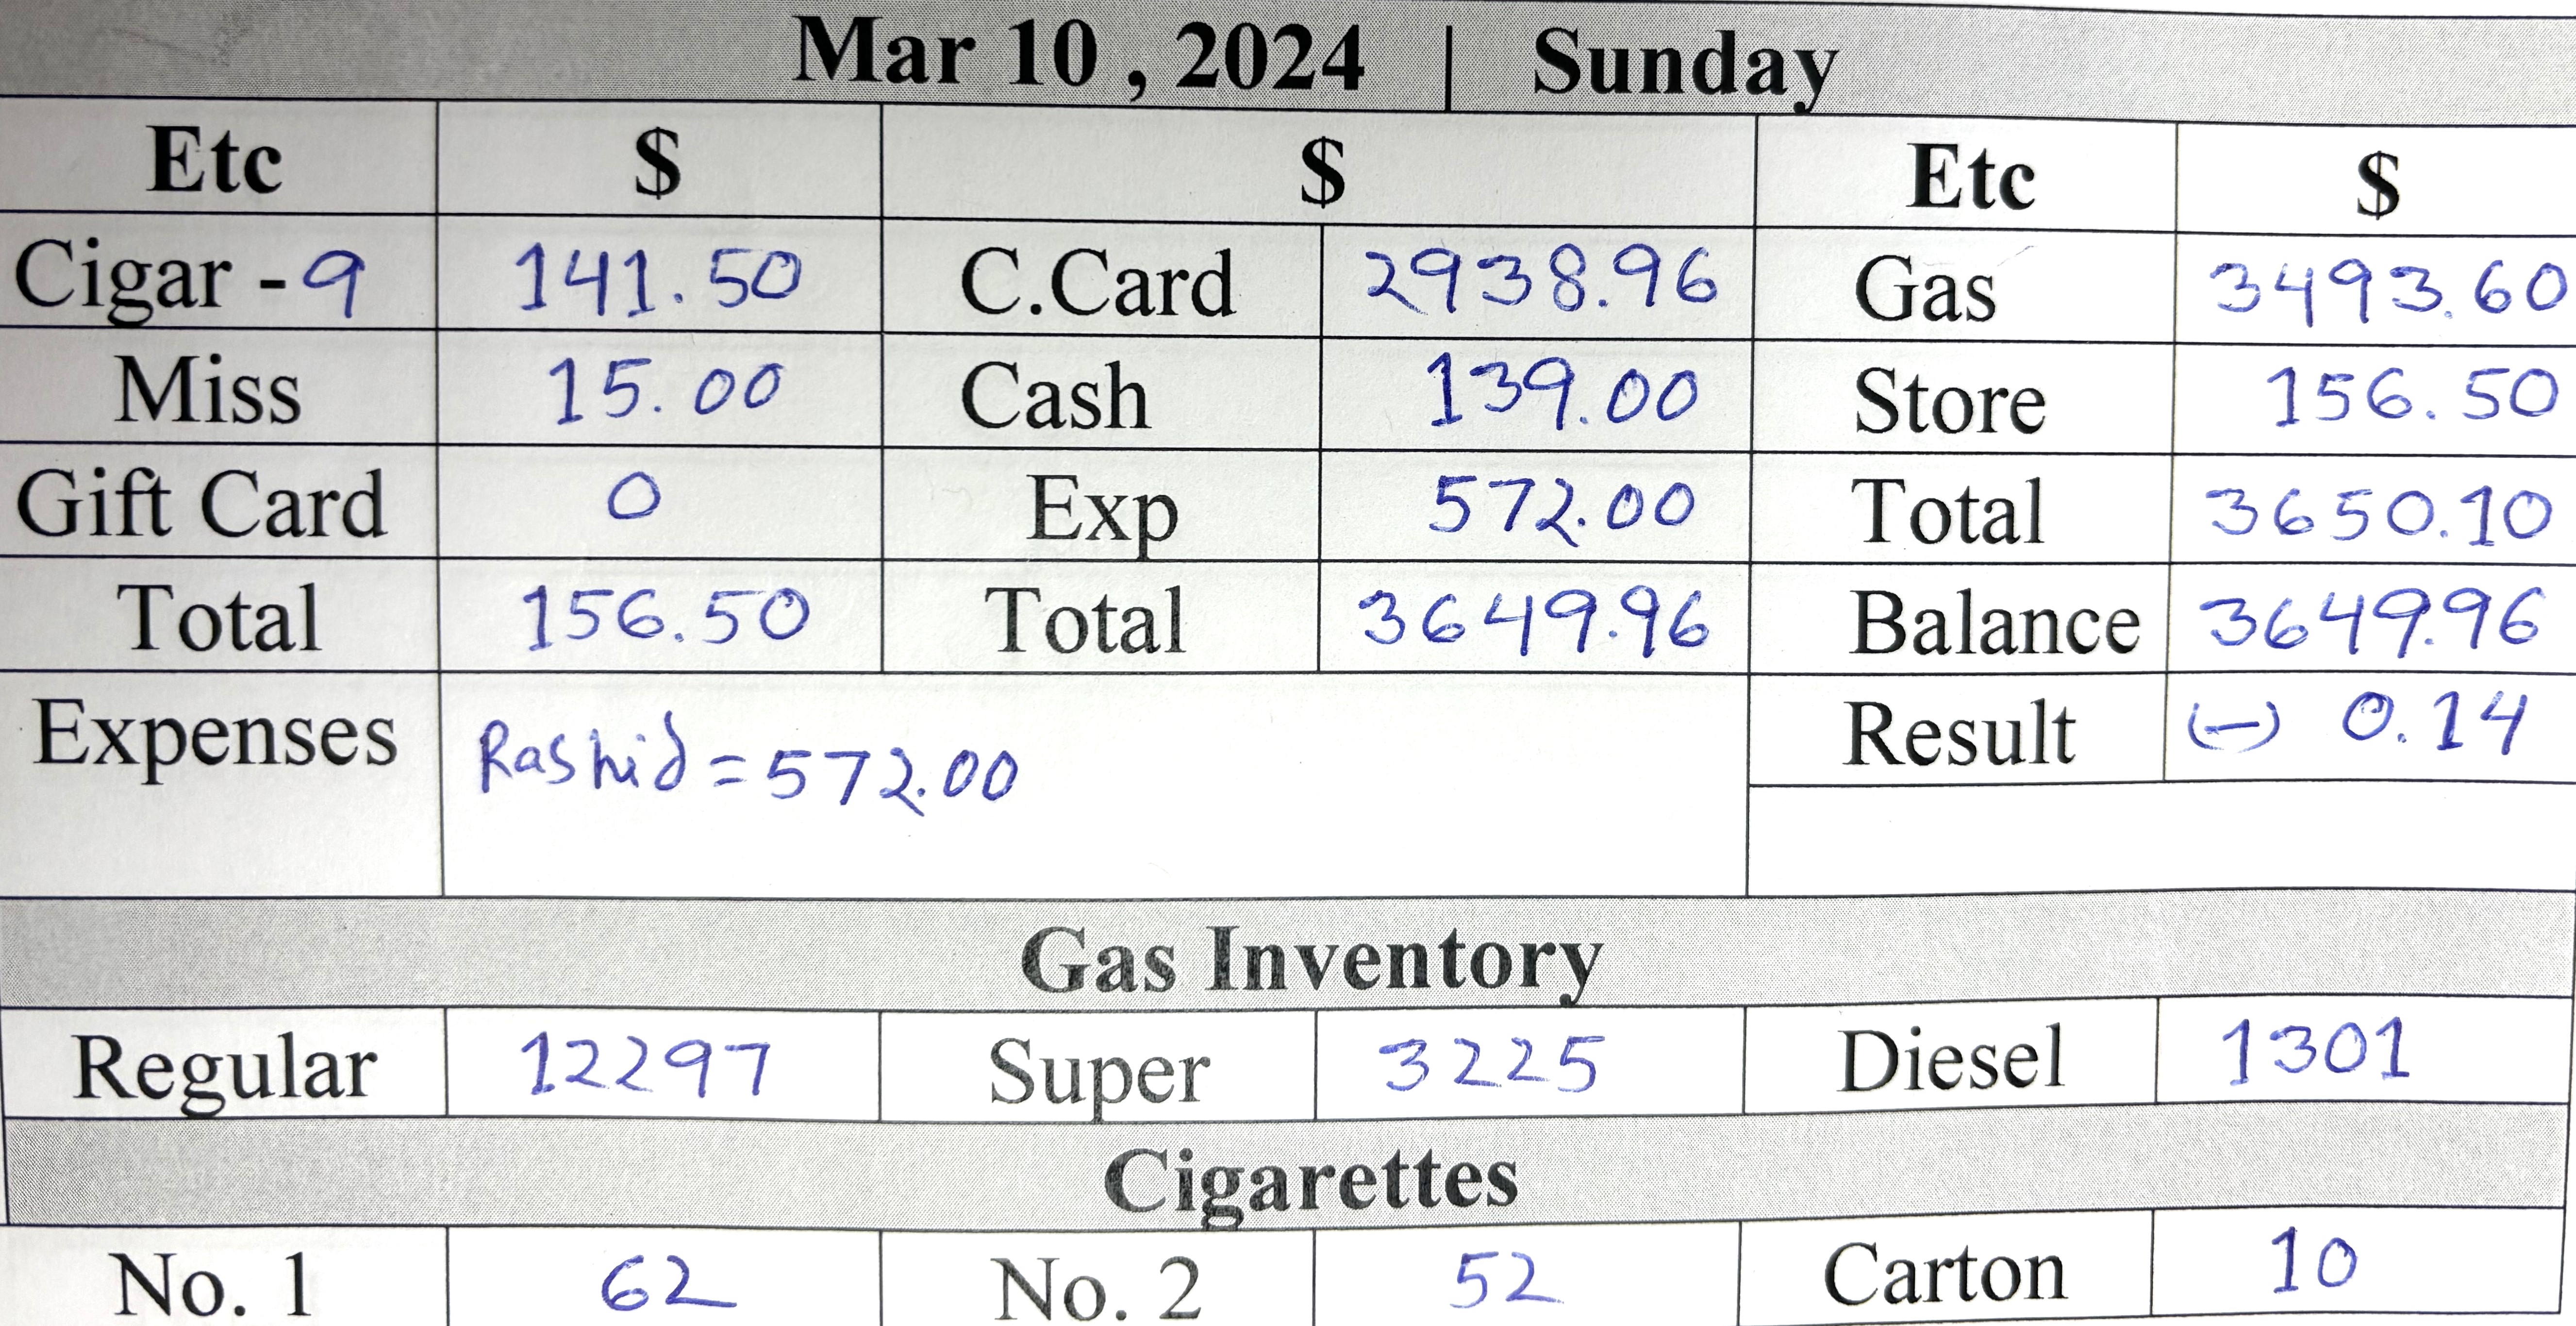 Mar 10 , 2024 | Sunday
Etc $ $ Etc $
Cigar - 9 141.50 C.Card 2938.96 Gas 3493.60
Miss 15.00 Cash 139.00 Store 156.50
Gift Card 0 Exp 572.00 Total 3650.10
Total 156.50 Total 3649.96 Balance 3649.96
Expenses Rashid = 572.00 Result (-) 0.14
Gas Inventory
Regular 12297 Super 3225 Diesel 1301
Cigarettes
No. 1 62 No. 2 52 Carton 10